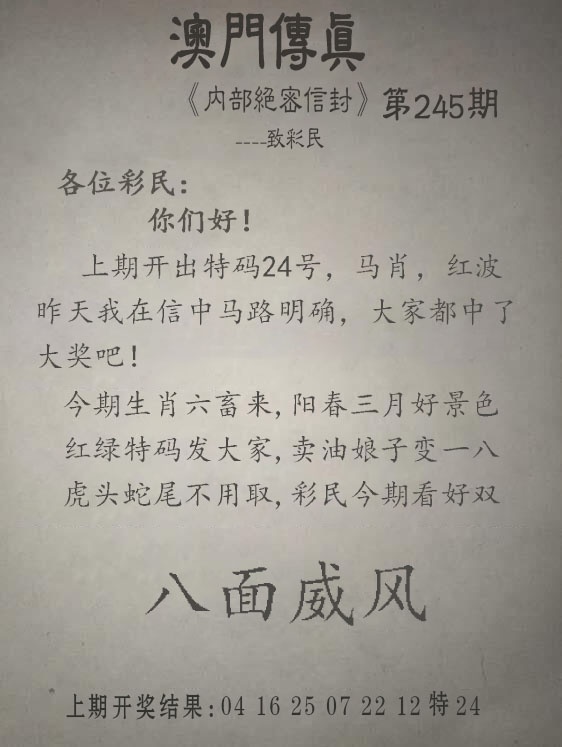 澳門傳真
《内部絕密信封》第245期
----致彩民
各位彩民：
你们好！
上期开出特码24号，马肖，红波
昨天我在信中马路明确，大家都中了
大奖吧！
今期生肖六畜来,阳春三月好景色
红绿特码发大家,卖油娘子变一八
虎头蛇尾不用取,彩民今期看好双
八面威风
上期开奖结果:04 16 25 07 22 12特24